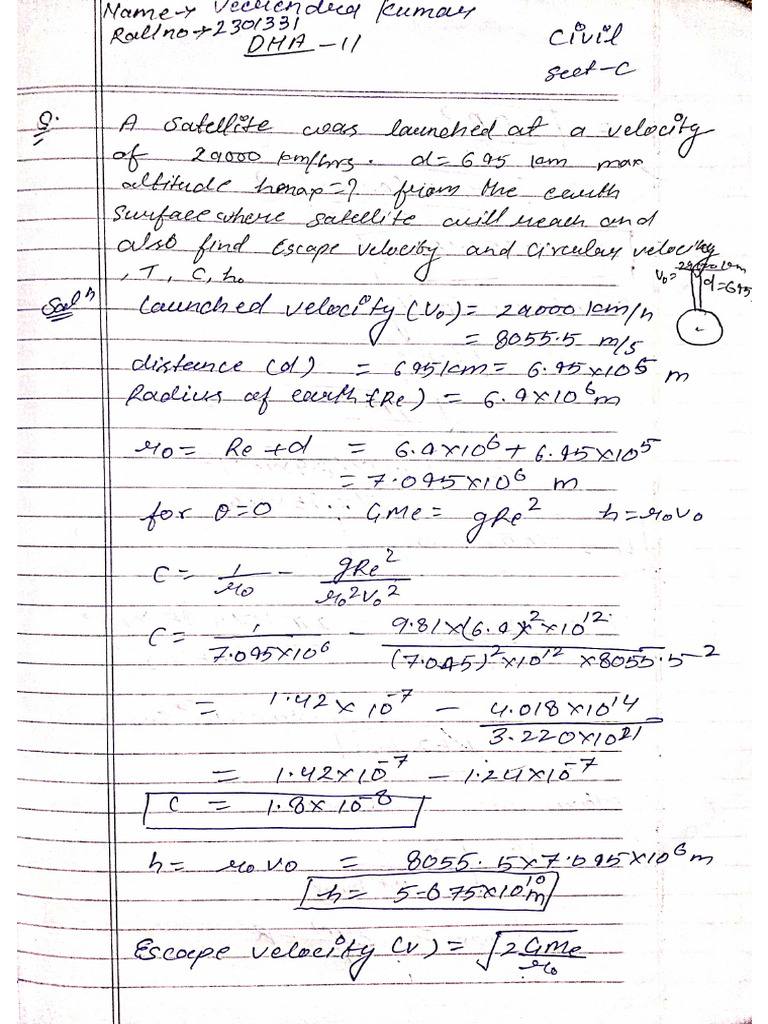 Name → Veerendra Kumar
Roll no → 2301331
DHA - 11
Civil
Sect - C
Q. A satellite was launched at a velocity
of 29000 km/hrs. d = 695 km max
altitude hmax = ? from the earth
surface where satellite will reach and
also find Escape velocity and Circular velocity
, T, C, h.
V0 = 29000 km
d = 695
Solⁿ Launched velocity (V0) = 29000 km/h
= 8055.5 m/s
distance (d) = 695 km = 6.95 × 10⁵ m
Radius of earth (Re) = 6.4 × 10⁶ m
r0 = Re + d = 6.4 × 10⁶ + 6.95 × 10⁵
= 7.095 × 10⁶ m
for θ = 0 ∵ GMe = gRe² h = r0v0
C = 1/r0 - gRe²/r0²v0²
C = 1/7.095×10⁶ - 9.81×(6.4)²×10¹²/(7.095)²×10¹² ×8055.5²
= 1.42 × 10⁻⁷ - 4.018×10¹⁴/3.220×10²¹
= 1.42×10⁻⁷ - 1.24×10⁻⁷
C = 1.8 × 10⁻⁸
h = r0v0 = 8055.5×7.095×10⁶ m
h = 5.675×10¹⁰ m
Escape velocity (v) = √2GMe/r0